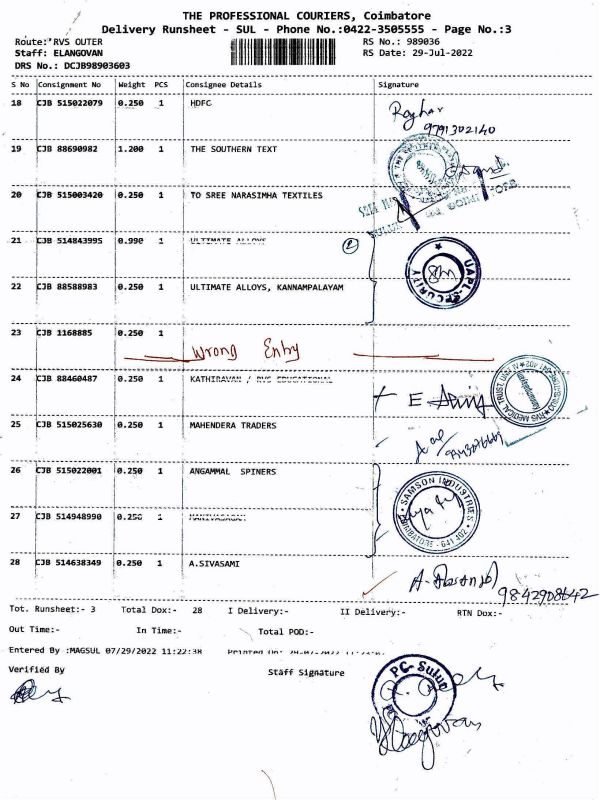 THE PROFESSIONAL COURIERS, Coimbatore
Delivery Runsheet - SUL - Phone No.:0422-3505555 - Page No.:3
Route:"RVS OUTER
RS No.: 989036
Staff: ELANGOVAN
RS Date: 29-Jul-2022
DRS No.: DCJB98903603
S No Consignment No Weight PCS Consignee Details Signature
18 CJB 515022079 0.250 1 HDFC
Raghav
9791302140
19 CJB 88690982 1.200 1 THE SOUTHERN TEXT
20 CJB 515003420 0.250 1 TO SREE NARASIMHA TEXTILES
21 CJB 514843995 0.990 1 ULTIMATE ALLOYS
2
UAPL-SECURITY
22 CJB 88588983 0.250 1 ULTIMATE ALLOYS, KANNAMPALAYAM
23 CJB 1168885 0.250 1
Wrong Entry
24 CJB 88460487 0.250 1 KATHIRAVAN / RVS EDUCATIONAL
25 CJB 515025630 0.250 1 MAHENDERA TRADERS
26 CJB 515022001 0.250 1 ANGAMMAL SPINERS
SAMSON INDUSTRIES
COIMBATORE - 641 402
27 CJB 514948990 0.250 1 MANIVASAGAN
28 CJB 514638349 0.250 1 A.SIVASAMI
9842908642
Tot. Runsheet:- 3 Total Dox:- 28 I Delivery:- II Delivery:- RTN Dox:-
Out Time:- In Time:- Total POD:-
Entered By :MAGSUL 07/29/2022 11:22:38 Printed On:
Verified By Staff Signature
PC Sulur
Elangovan